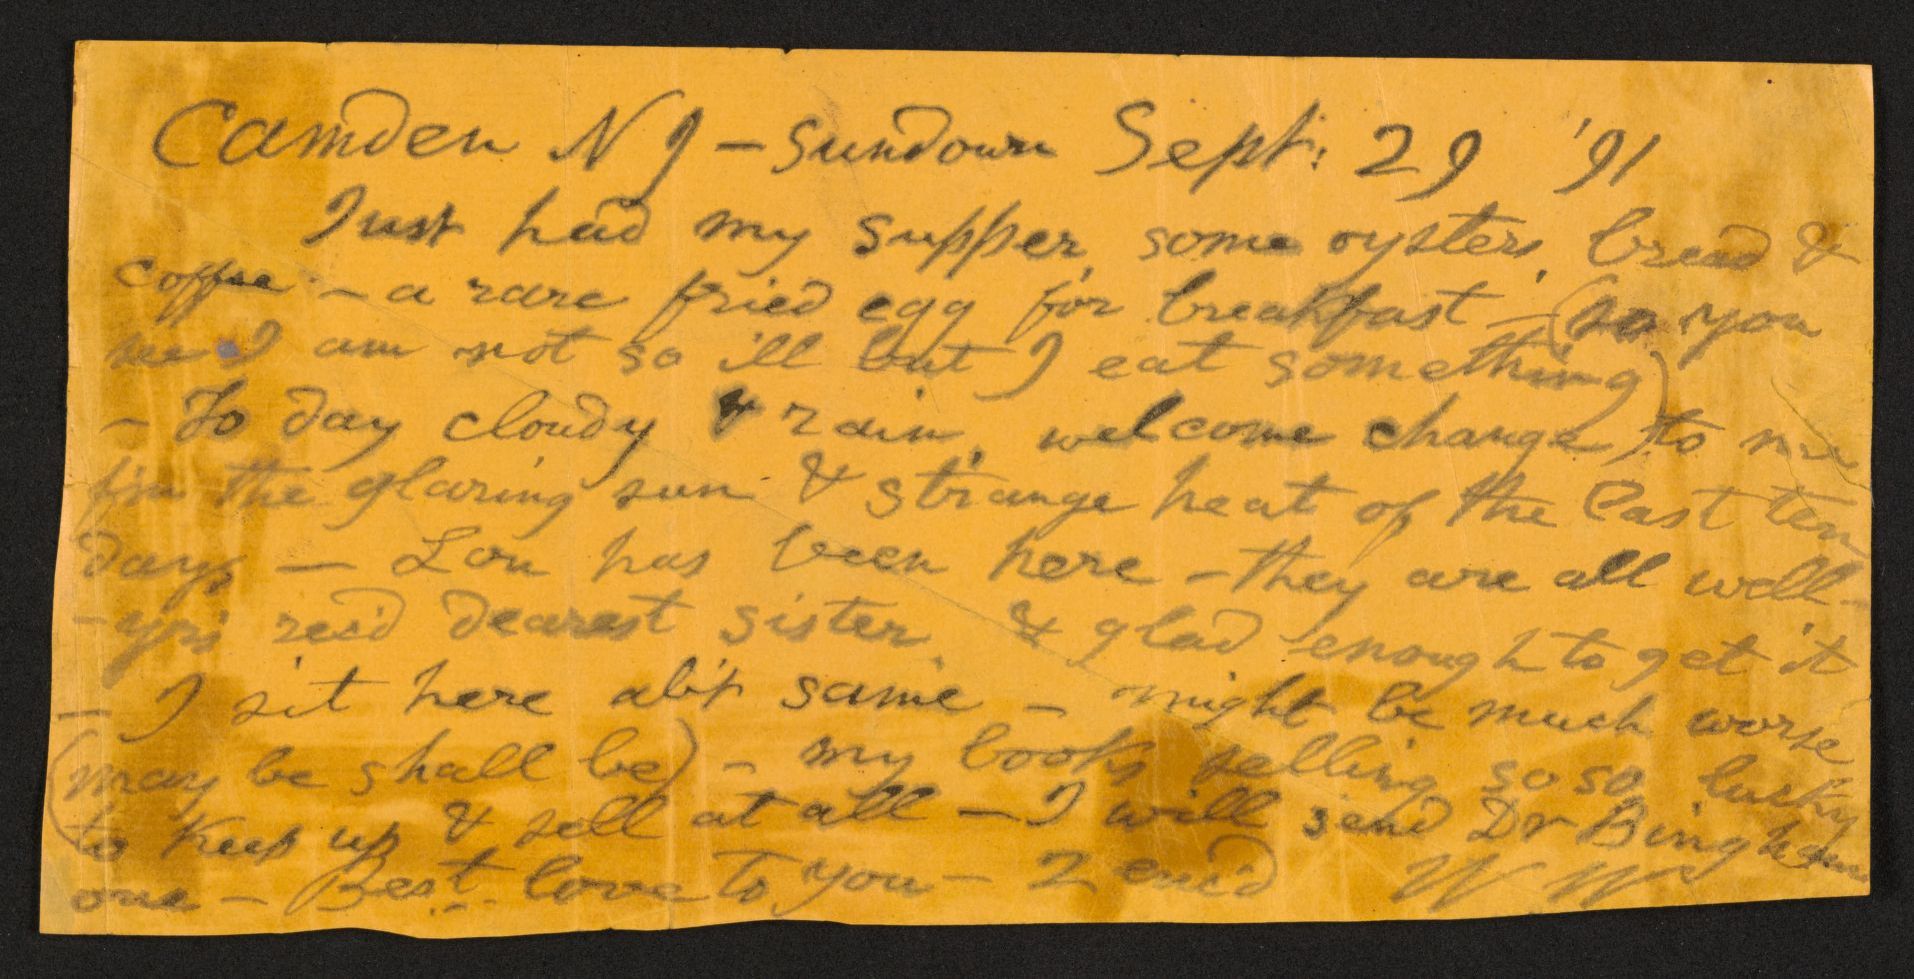 Camden N J – Sundown Sept: 29 '91
Just had my supper, some oysters, bread &
coffee – a rare fried egg for breakfast – (so you
see I am not so ill but I eat something)
– To day cloudy & rain, welcome change) to me
f'm the glaring sun & strange heat of the last ten
days – Lou has been here – they are all well –
– yrs rec'd dearest sister, & glad enough to get it
– I sit here ab't same – might be much worse
(may be shall be) – my books selling so so lucky
to keep up & sell at all – I will send Dr Bingham
one – Best love to you – 2 enc'd W W